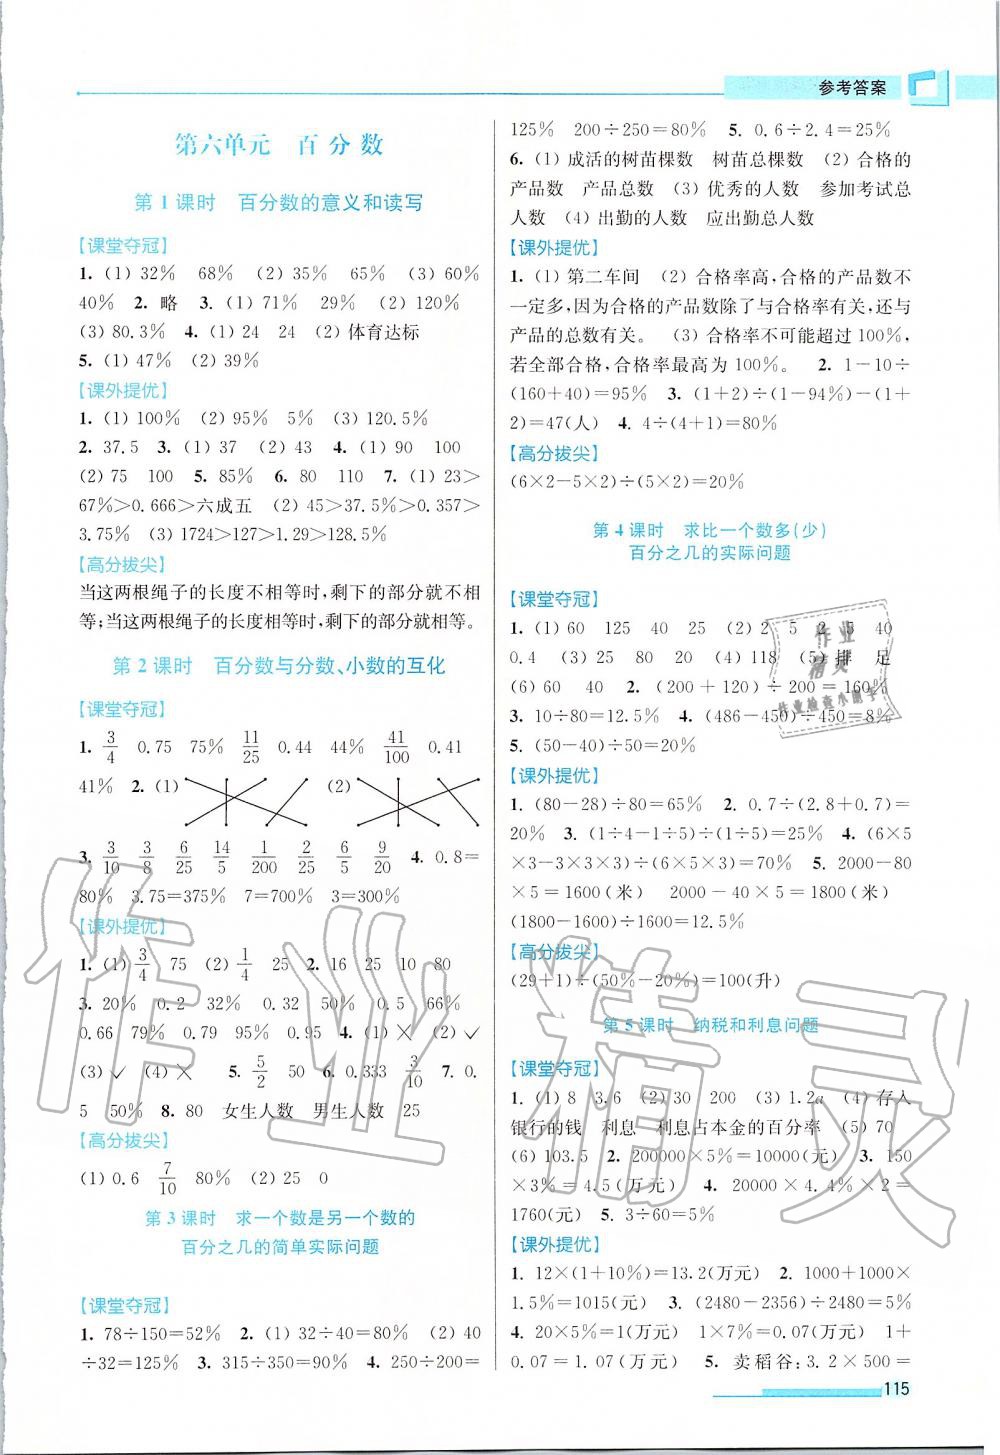 参考答案
第六单元　百分数
第1课时　百分数的意义和读写
【课堂夺冠】
1. (1) 32%　68%　(2) 35%　65%　(3) 60%
40%　2. 略　3. (1) 71%　29%　(2) 120%
(3) 80.3%　4. (1) 24　24　(2) 体育达标
5. (1) 47%　(2) 39%
【课外提优】
1. (1) 100%　(2) 95%　5%　(3) 120.5%
2. 37.5　3. (1) 37　(2) 43　4. (1) 90　100
(2) 75　100　5. 85%　6. 80　110　7. (1) 23>
67%>0.666>六成五　(2) 45>37.5%>0.357>
3.75%　(3) 1724>127>1.29>128.5%
【高分拔尖】
当这两根绳子的长度不相等时,剩下的部分就不相
等;当这两根绳子的长度相等时,剩下的部分就相等。
第2课时　百分数与分数、小数的互化
【课堂夺冠】
1. 3/4　0.75　75%　11/25　0.44　44%　41/100　0.41
41%　2. (1)　(2)
3. 3/10　3/8　6/25　14/5　1/200　2/25　6/5　9/20　4. 0.8=
80%　3.75=375%　7=700%　3=300%
【课外提优】
1. (1) 3/4　75　(2) 1/4　25　2. 16　25　10　80
3. 20%　0.2　32%　0.32　50%　0.5　66%
0.66　79%　0.79　95%　0.95　4. (1) ×　(2) ✓
(3) ✓　(4) ×　5. 5/2　50　6. 0.333　3/10　7. 0.
5　50%　8. 80　女生人数　男生人数　25
【高分拔尖】
(1) 0.6　7/10　80%　(2) 25　0
第3课时　求一个数是另一个数的
百分之几的简单实际问题
【课堂夺冠】
1. 78÷150=52%　2. (1) 32÷40=80%　(2) 40
÷32=125%　3. 315÷350=90%　4. 250÷200=
125%　200÷250=80%　5. 0.6÷2.4=25%
6. (1) 成活的树苗棵数　树苗总棵数　(2) 合格的
产品数　产品总数　(3) 优秀的人数　参加考试总
人数　(4) 出勤的人数　应出勤总人数
【课外提优】
1. (1) 第二车间　(2) 合格率高,合格的产品数不
一定多,因为合格的产品数除了与合格率有关,还与
产品的总数有关。　(3) 合格率不可能超过100%,
若全部合格,合格率最高为100%。　2. 1-10÷
(160+40)=95%　3. (1+2)÷(1-94%)-(1+
2)=47(人)　4. 4÷(4+1)=80%
【高分拔尖】
(6×2-5×2)÷(5×2)=20%
第4课时　求比一个数多(少)
百分之几的实际问题
【课堂夺冠】
1. (1) 60　125　40　25　(2) 2　5　2　5　40
0.4　(3) 25　80　20　(4) 118　(5) 排　足
(6) 60　40　2. (200+120)÷200=160%
3. 10÷80=12.5%　4. (486-450)÷450=8%
5. (50-40)÷50=20%
【课外提优】
1. (80-28)÷80=65%　2. 0.7÷(2.8+0.7)=
20%　3. (1÷4-1÷5)÷(1÷5)=25%　4. (6×5
×3-3×3×3)÷(6×5×3)=70%　5. 2000-80
×5=1600(米)　2000-40×5=1800(米)
(1800-1600)÷1600=12.5%
【高分拔尖】
(29+1)÷(50%-20%)=100(升)
第5课时　纳税和利息问题
【课堂夺冠】
1. (1) 8　3.6　(2) 30　200　(3) 1.2a　(4) 存入
银行的钱　利息　利息占本金的百分率　(5) 70
(6) 103.5　2. 200000×5%=10000(元)　3. 150
×3%=4.5(万元)　4. 20000×4.4%×2=
1760(元)　5. 3÷60=5%
【课外提优】
1. 12×(1+10%)=13.2(万元)　2. 1000+1000×
1.5%=1015(元)　3. (2480-2356)÷2480=5%
4. 20×5%=1(万元)　1×7%=0.07(万元)　1+
0.07=1.07(万元)　5. 卖稻谷:3.2×500=
115
作业精灵
作业
精灵
作业检查小助手